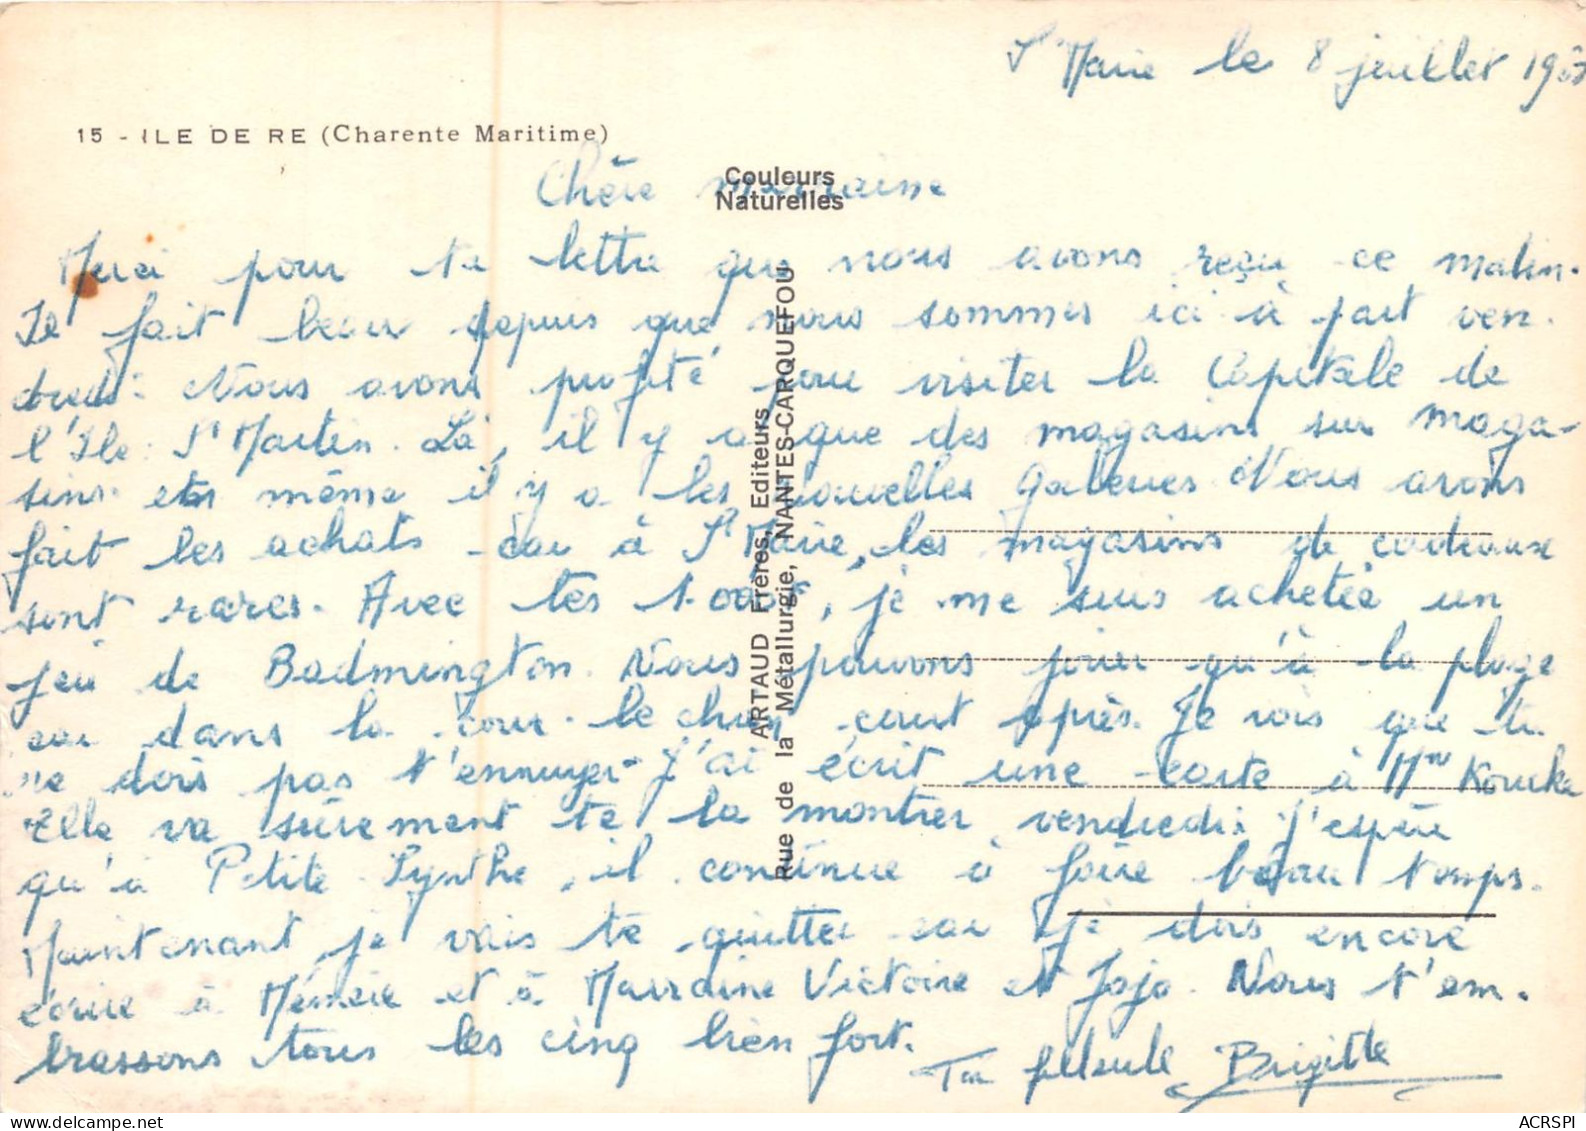 St Marie le 8 juillet 19
15 - ILE DE RE (Charente Maritime)
Couleurs
Naturelles
Chère marraine
Merci pour ta lettre que nous avons reçu ce matin.
Il fait beau depuis que nous sommes ici à part ven-
dredi. Nous avons profité pour visiter la Capitale de
l'Ile: St Martin. Là, il y a que des magasins sur maga-
sins et même il y a les nouvelles Galeries. Nous avons
fait les achats car à St Marie, les magasins de cadeaux
sont rares. Avec tes 1.000F, je me suis achetée un
jeu de Badmington. Nous pouvons jouer qu'à la plage
car dans la cour le chien court après. Je vois que tu
ne dois pas t'ennuyer. J'ai écrit une carte à Mme
Elle va sûrement te la montrer vendredi. J'espère
qu'à Petite Synthe, il continue à faire beau temps.
Maintenant je vais te quitter car je dois encore
écrire à Mémère et à Marraine Victoire et Jojo. Nous t'em-
brassons tous les cinq bien fort.
Ta filleule Brigitte
ARTAUD Frères, Editeurs
Rue de la Métallurgie, NANTES-CARQUEFOU
ACRSPI